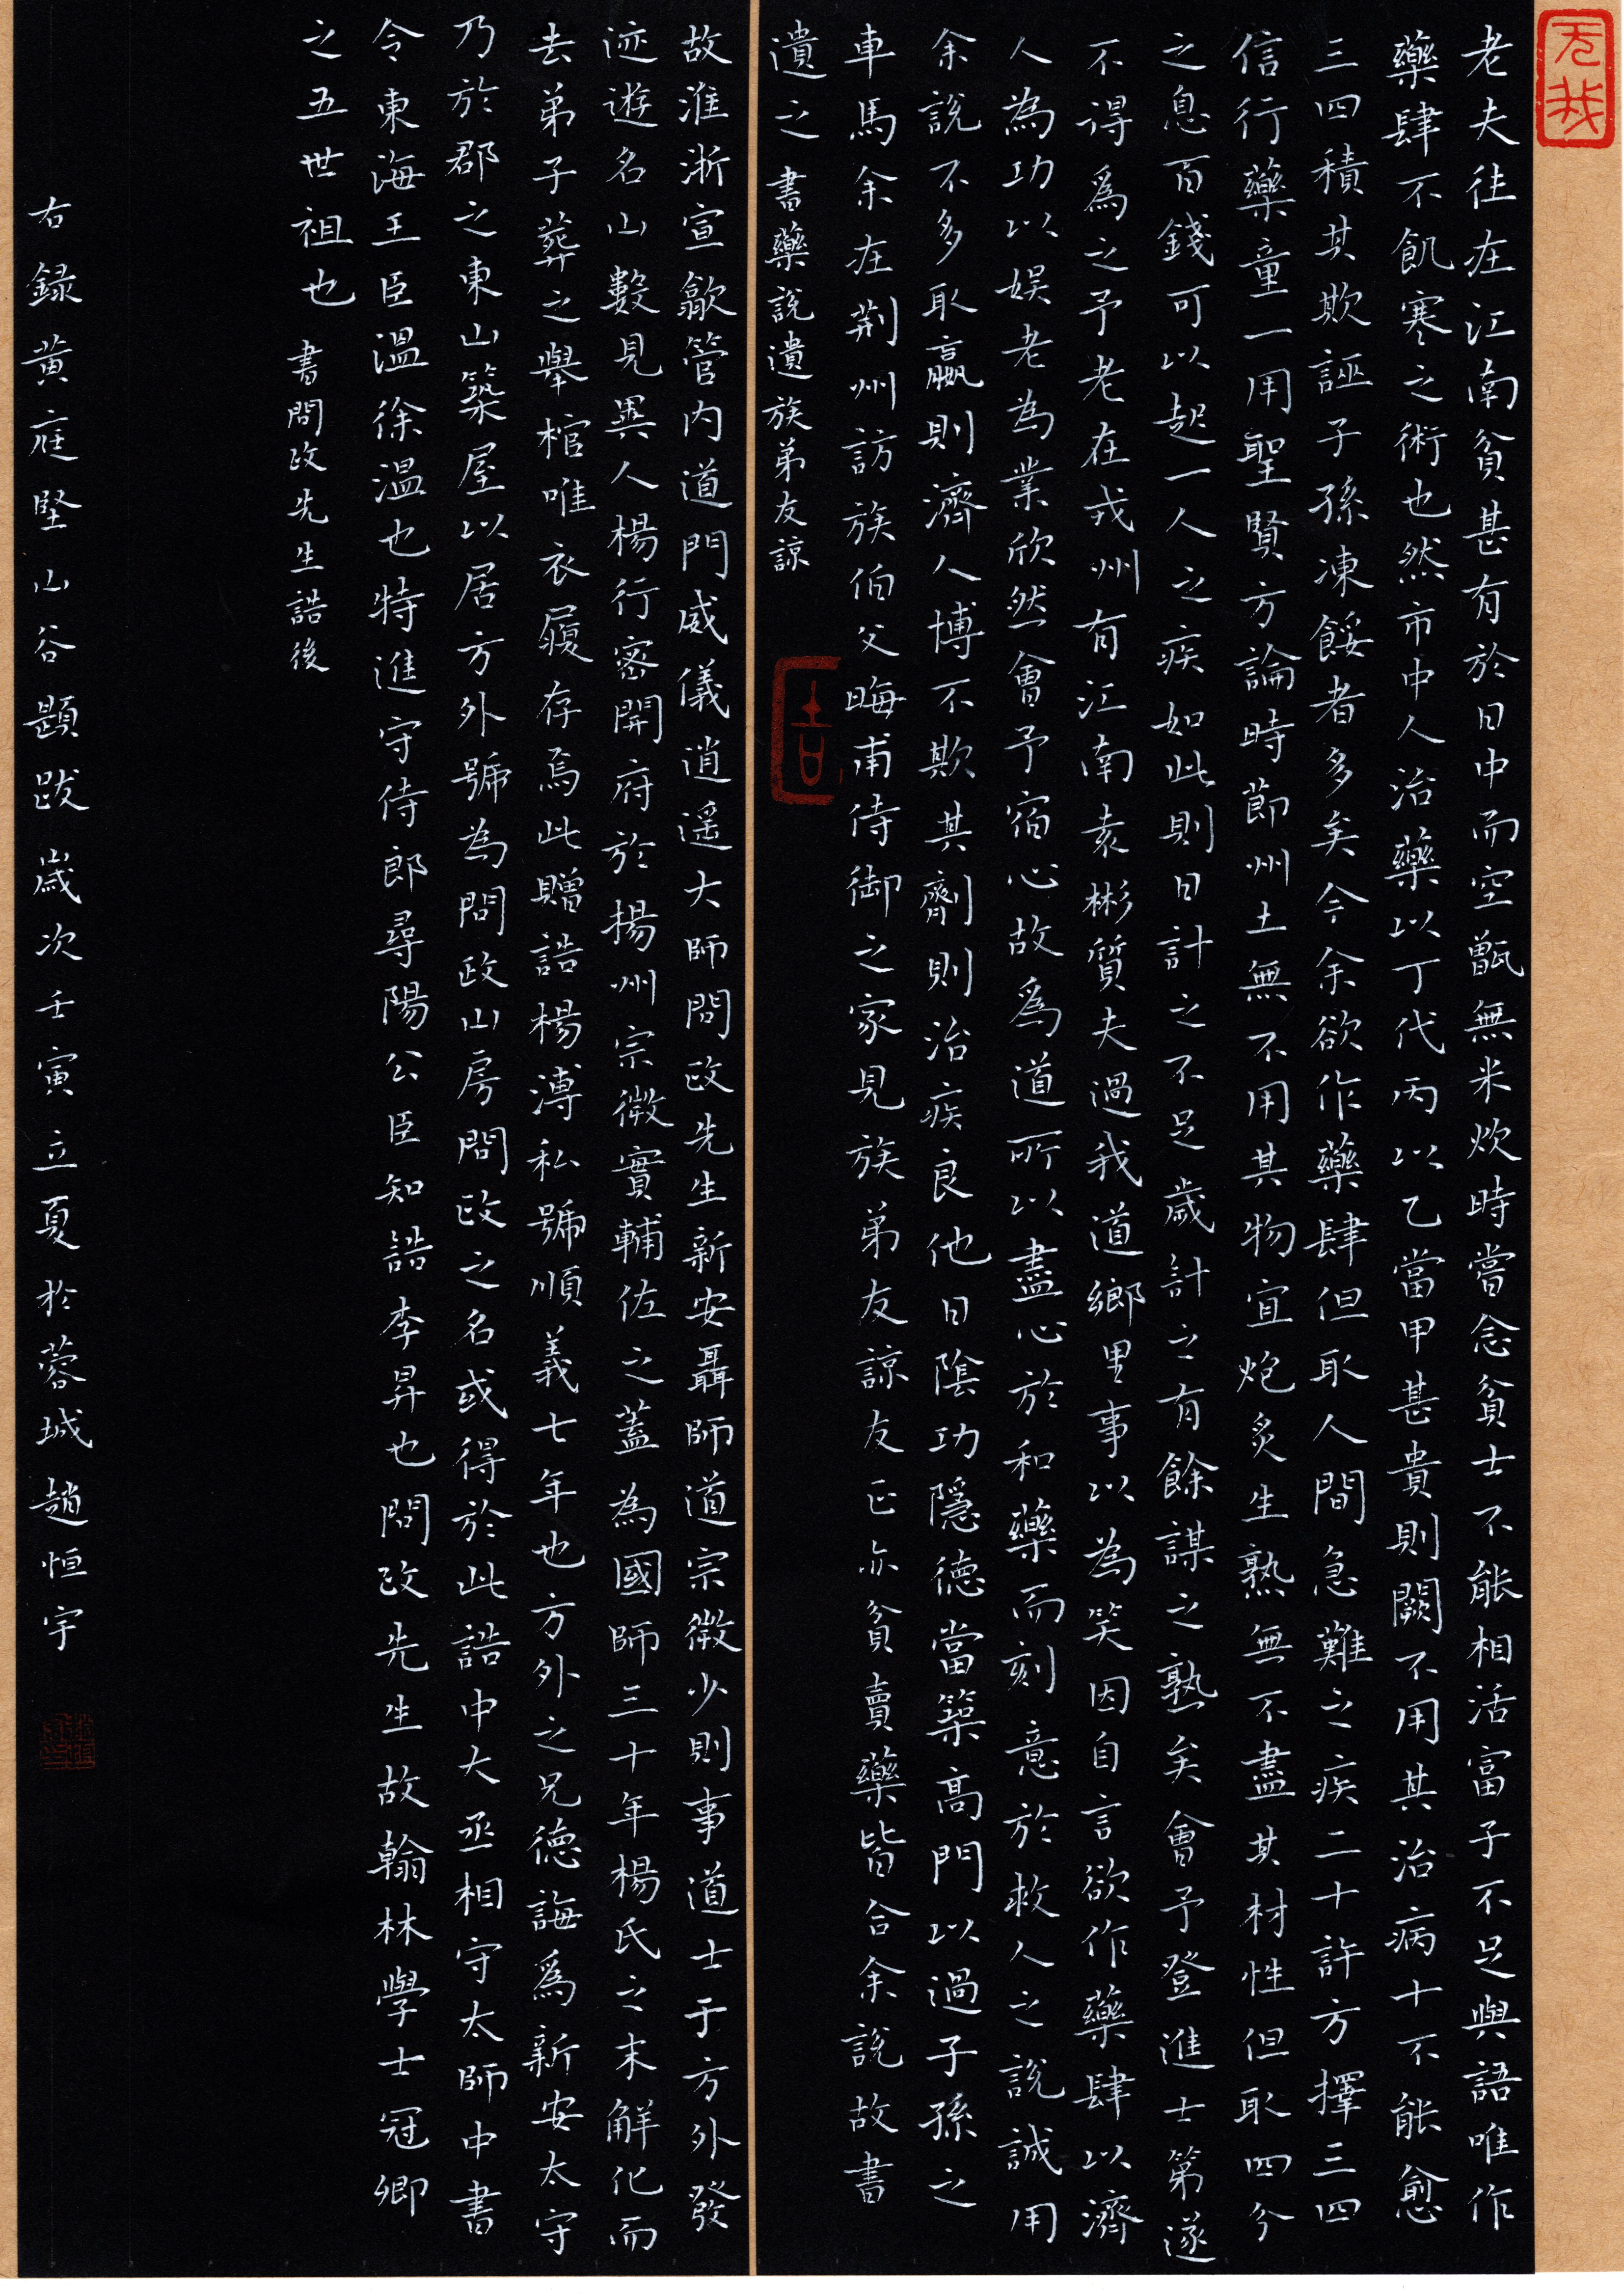 无哉
老夫往在江南貧甚有於日中而空甑無米炊時嘗念貧士不能相活富子不足與語唯作
藥肆不飢寒之術也然市中人治藥以丁代丙以乙當甲甚貴則闕不用其治病十不能愈
三四積其欺誣子孫凍餒者多矣今余欲作藥肆但取人間急難之疾二十許方擇三四
信行藥童一用聖賢方論時節州土無不用其物宜炮炙生熟無不盡其材性但取四分
之息百錢可以起一人之疾如此則日計之不足歲計之有餘謀之熟矣會予登進士第遂
不得爲之予老在戎州有江南袁彬質夫過我道鄉里事以為笑因自言欲作藥肆以濟
人為功以娱老為業欣然會予宿心故爲道所以盡心於和藥而刻意於救人之說誠用
余說不多取贏則濟人博不欺其劑則治疾良他日陰功隱德當築高門以過子孫之
車馬余在荆州訪族伯父晦甫侍御之家見族弟友諒友正亦貧賣藥皆合余說故書
遺之 書藥說遺族弟友諒
吉
故淮浙宣歙管内道門威儀逍遥大師問政先生新安聶師道宗微少則事道士于方外發
迹遊名山數見異人楊行密開府於揚州宗微實輔佐之蓋為國師三十年楊氏之末解化而
去弟子葬之舉棺唯衣屨存焉此贈誥楊溥私號順義七年也方外之兄德誨爲新安太守
乃於郡之東山築屋以居方外號為問政山房問政之名或得於此誥中大丞相守太師中書
令東海王臣溫徐溫也特進守侍郎尋陽公臣知誥李昇也問政先生故翰林學士冠卿
之五世祖也 書問政先生誥後
右録黄庭堅山谷題跋歲次壬寅立夏於蓉城趙恒宇